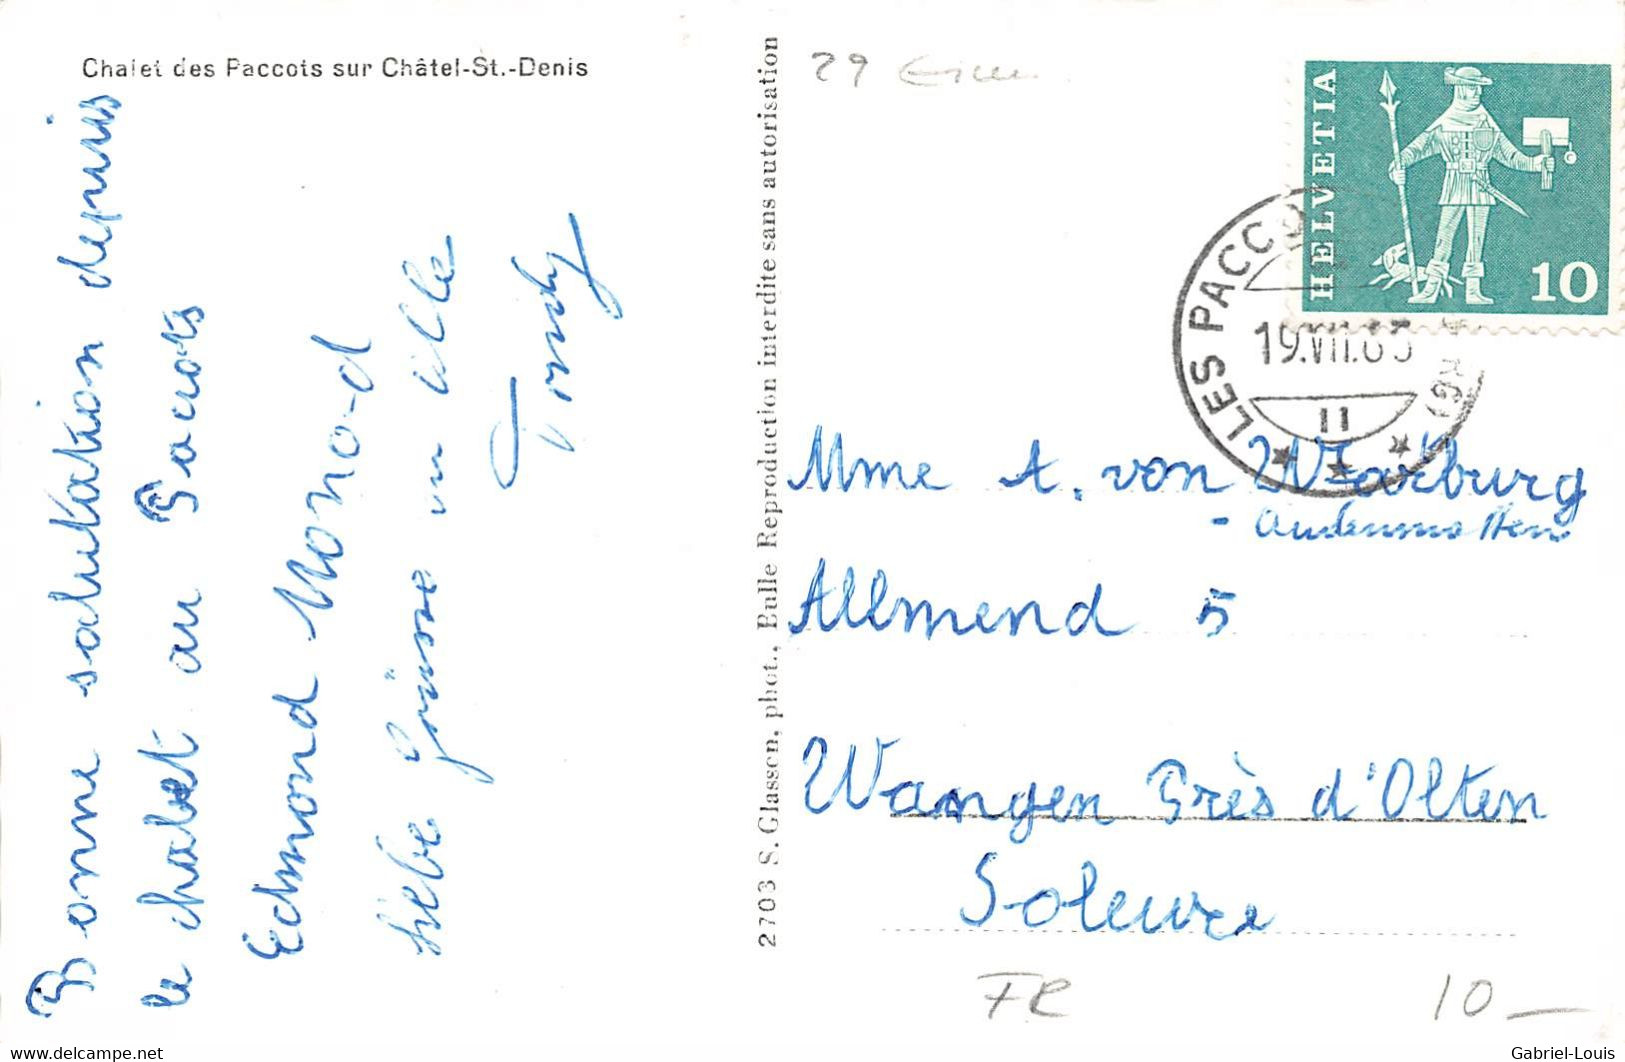 Chalet des Paccots sur Châtel-St.-Denis
Bonne salutation depuis
le chalet au Pacots
Edmond Monod
Liebe Grüsse an alle
2703 S. Glasson, phot., Bulle Reproduction interdite sans autorisation
29
HELVETIA
10
LES PACCO
19.VII.65
11
Mme A. von Warburg
- Andenmatten
Allmend 5
Wangen Près d'Olten
Soleure
FR
10 —
delcampe.net
Gabriel-Louis